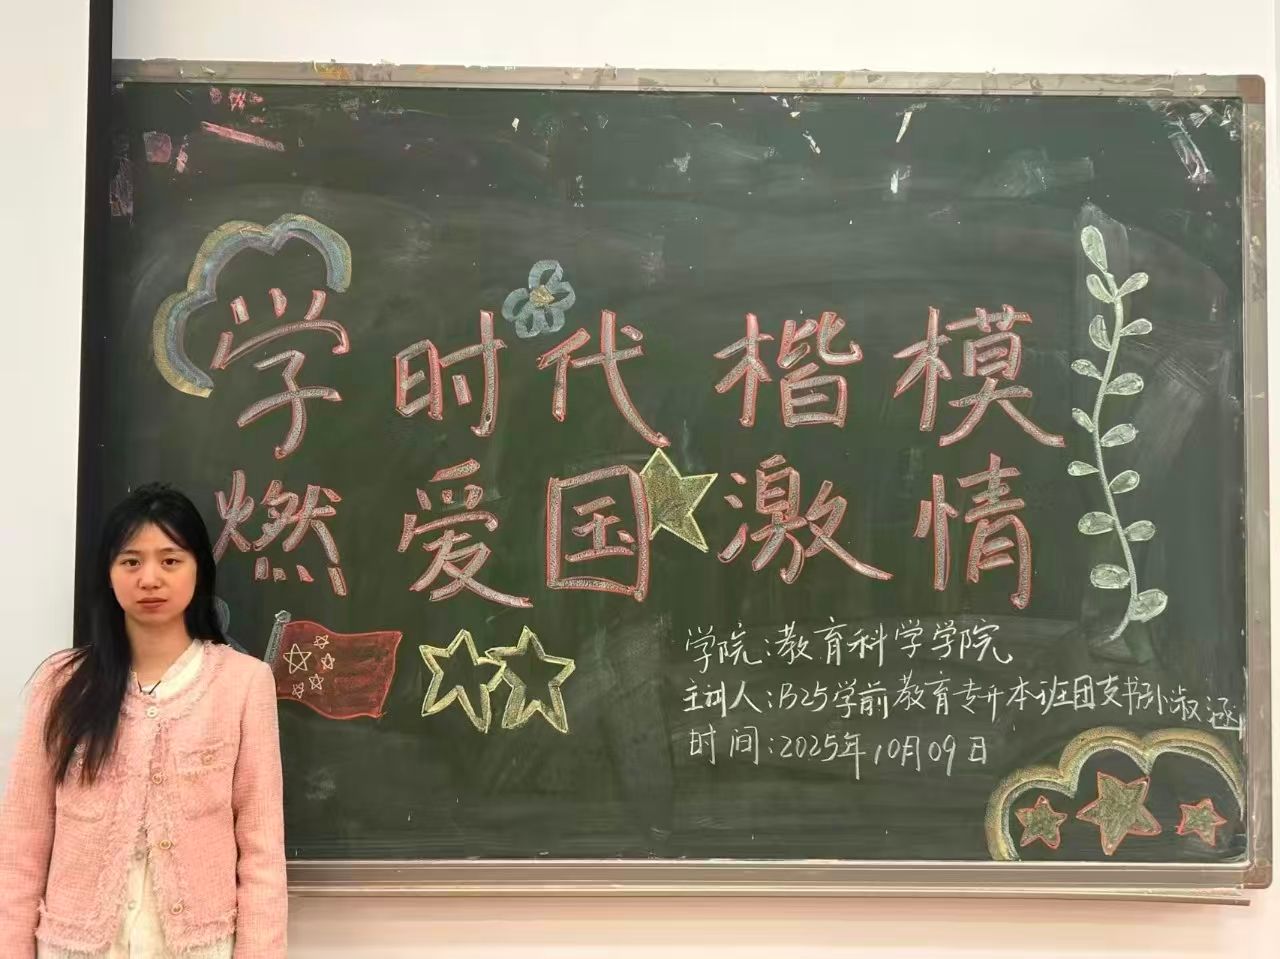 学时代楷模
燃爱国激情
学院:教育科学学院
主讲人:B25学前教育专升本班团支书孙淑涵
时间:2025年10月09日